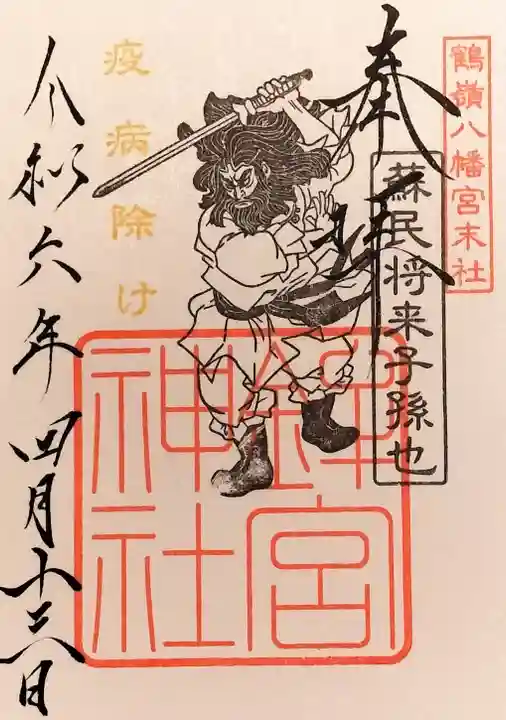 鶴嶺八幡宮末社
奉拝
蘇民将来子孫也
疫病除け
鉾宮
神社
令和六年四月十三日